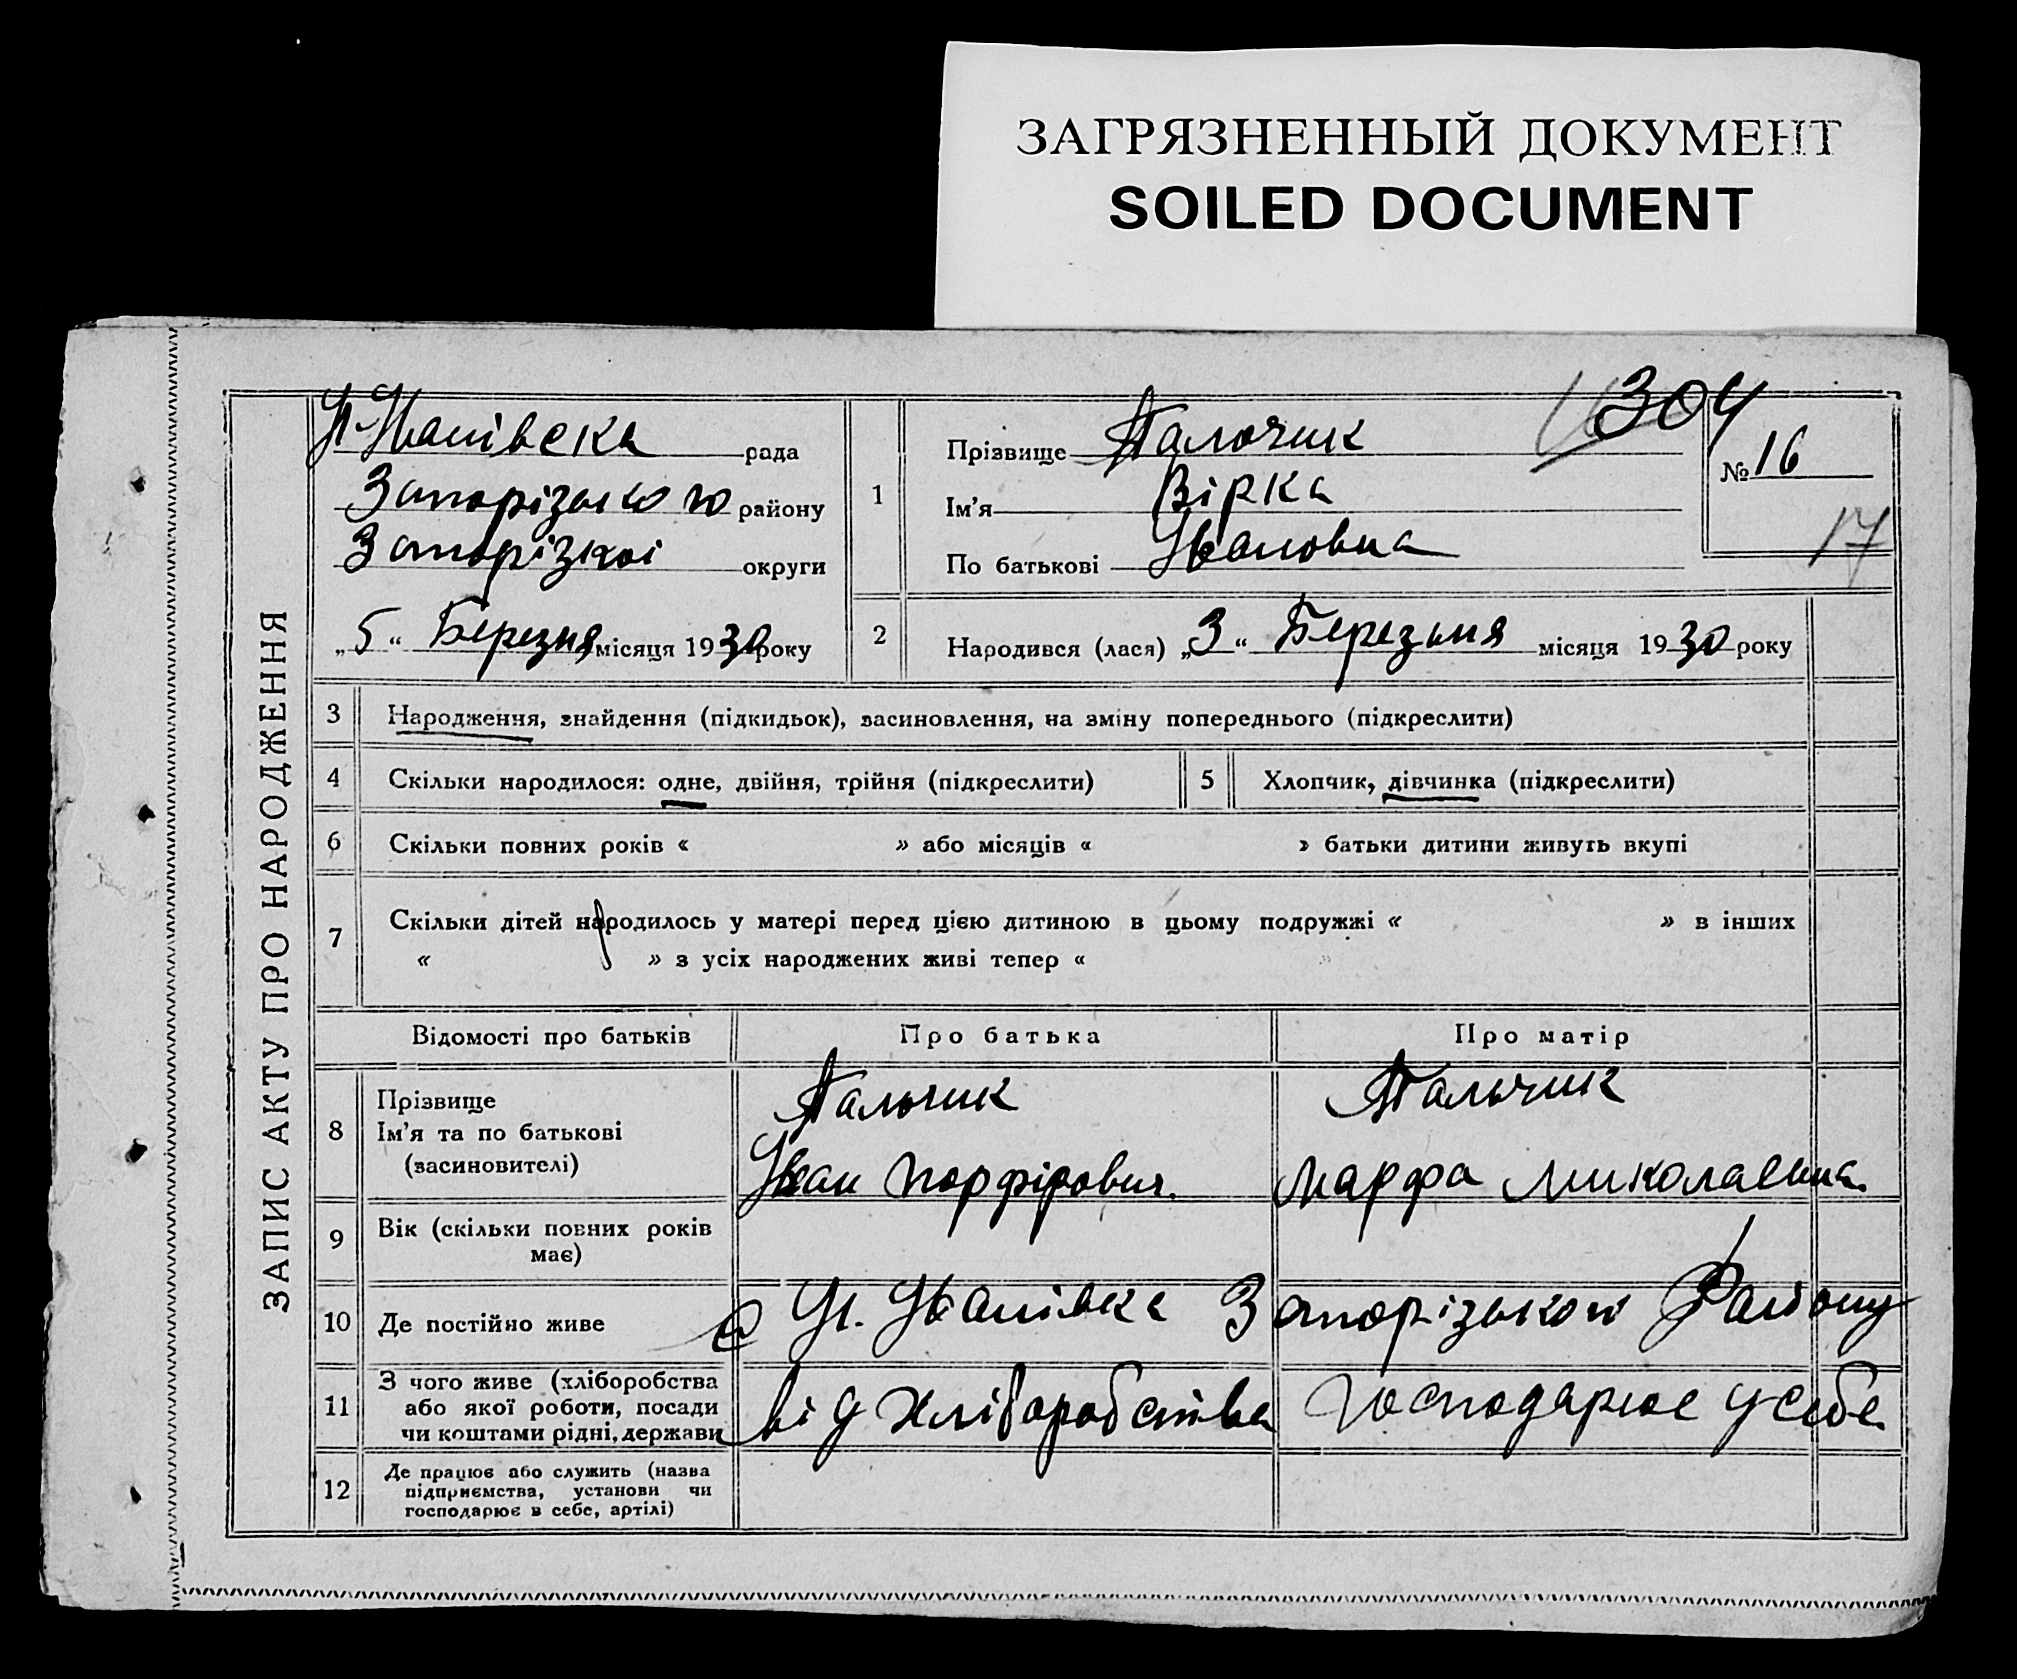 ЗАГРЯЗНЕННЫЙ ДОКУМЕНТ
SOILED DOCUMENT
ЗАПИС АКТУ ПРО НАРОДЖЕННЯ
Іванівска рада
Запорізького району
Запорізкоі округи
„5“ Березня місяця 1930 року
304
№ 16
17
1 Прізвище Пальчик
Ім'я Вірка
По батькові Івановна
2 Народився (лася) „3“ Березьня місяця 1930 року
3 Народження, знайдення (підкидьок), засиновлення, на зміну попереднього (підкреслити)
4 Скільки народилося: одне, двійня, трійня (підкреслити)
5 Хлопчик, дівчинка (підкреслити)
6 Скільки повних років « » або місяців « » батьки дитини живуть вкупі
7 Скільки дітей народилось у матері перед цією дитиною в цьому подружжі « » в інших
« » з усіх народжених живі тепер « »
Відомості про батьків Про батька Про матір
8 Прізвище
Ім'я та по батькові
(засиновителі)
Пальчик
Іван Порфірович.
Пальчик
Марфа Миколаевна
9 Вік (скільки повних років
має)
10 Де постійно живе
с Ів. Іванівка Запорізького Району
11 З чого живе (хліборобства
або якої роботи, посади
чи коштами рідні, держави
від хліборобства
господарює у себе
12 Де працює або служить (назва
підприємства, установи чи
господарює в себе, артілі)